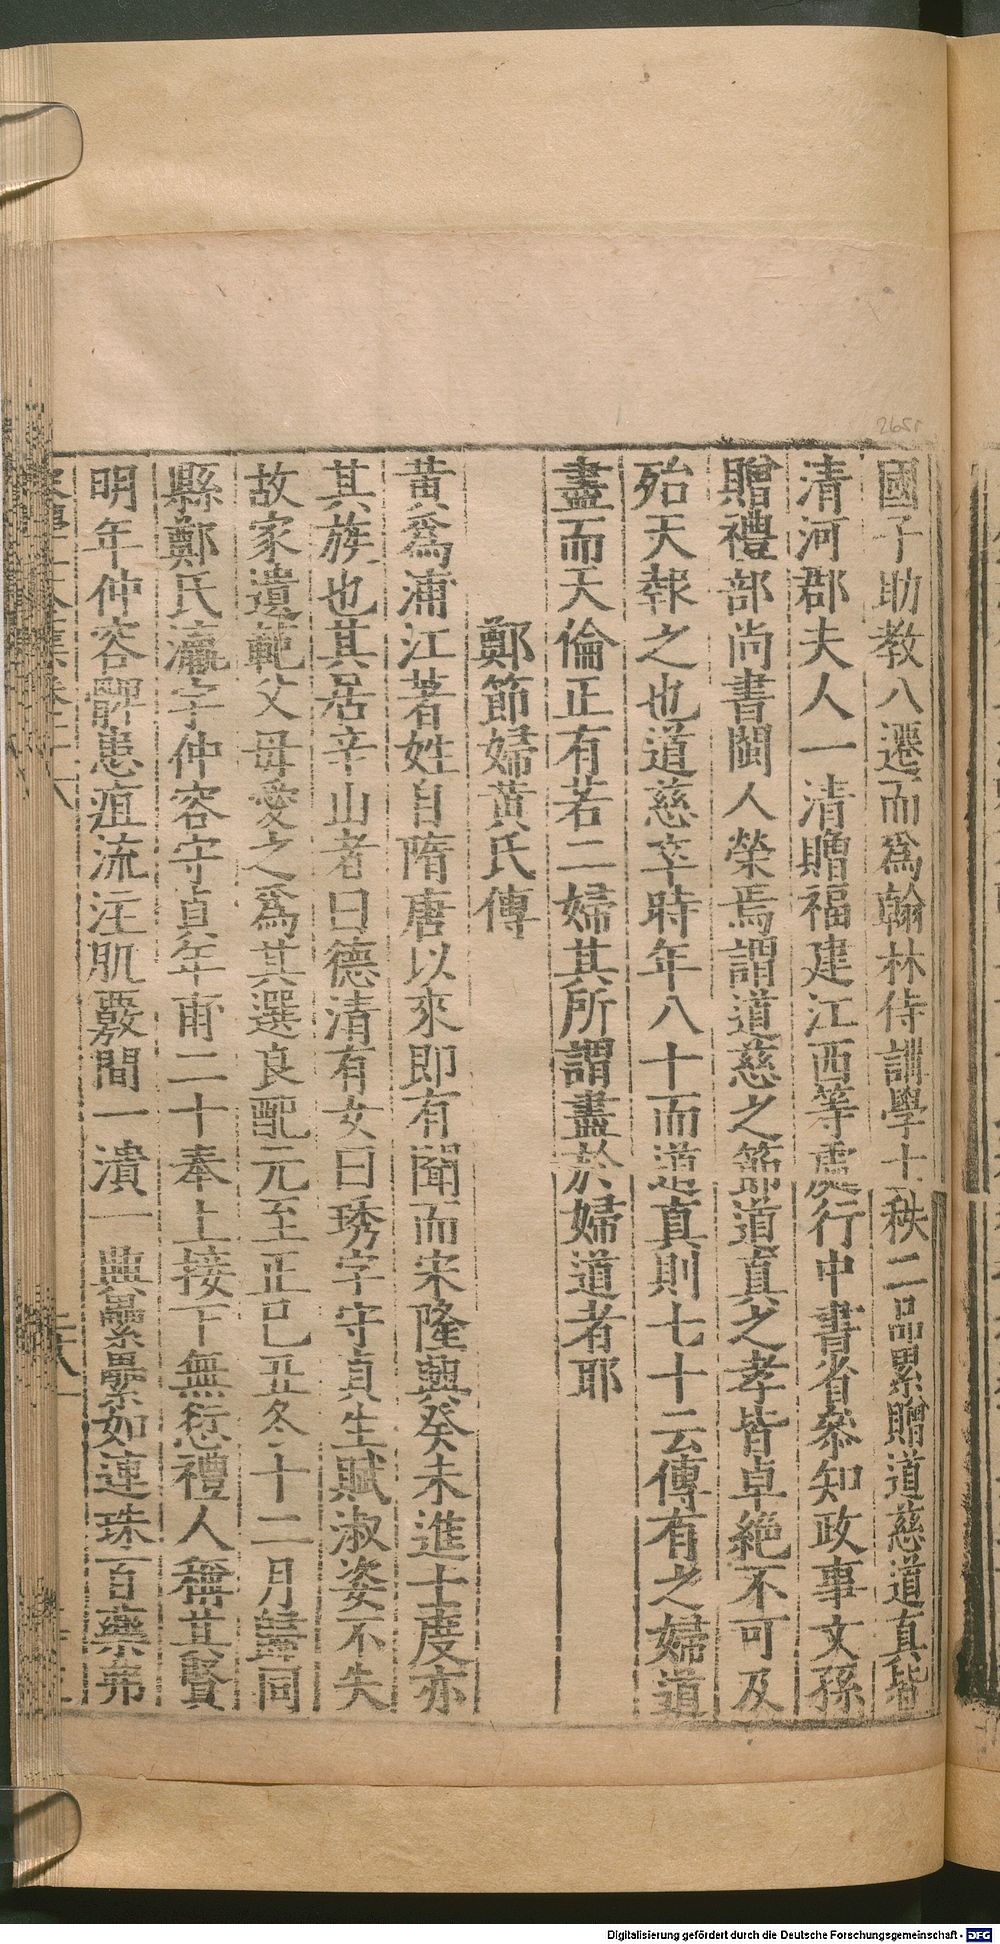 國子助教八遷而爲翰林侍講學士秩二品累贈道慈道真皆
清河郡夫人一清贈福建江西等處行中書省叅知政事文孫
贈禮部尚書閩人榮焉謂道慈之節道真之孝皆卓絶不可及
殆天報之也道慈卒時年八十而道真則七十云傳有之婦道
盡而天倫正有若二婦其所謂盡於婦道者耶
鄭節婦黃氏傳
黃爲浦江著姓自隋唐以來即有聞而宋隆興癸未進士度亦
其族也其居辛山者曰德清有女曰琇字守貞生賦淑姿不失
故家遺範父母愛之爲其選良配元至正己丑冬十二月歸同
縣鄭氏瀛字仲容守貞年甫二十奉上接下無愆禮人稱其賢
明年仲容髀患疽流注肌覈間一潰一興纍纍如連珠百藥弗
2651
Digitalisierung gefördert durch die Deutsche Forschungsgemeinschaft - DFG